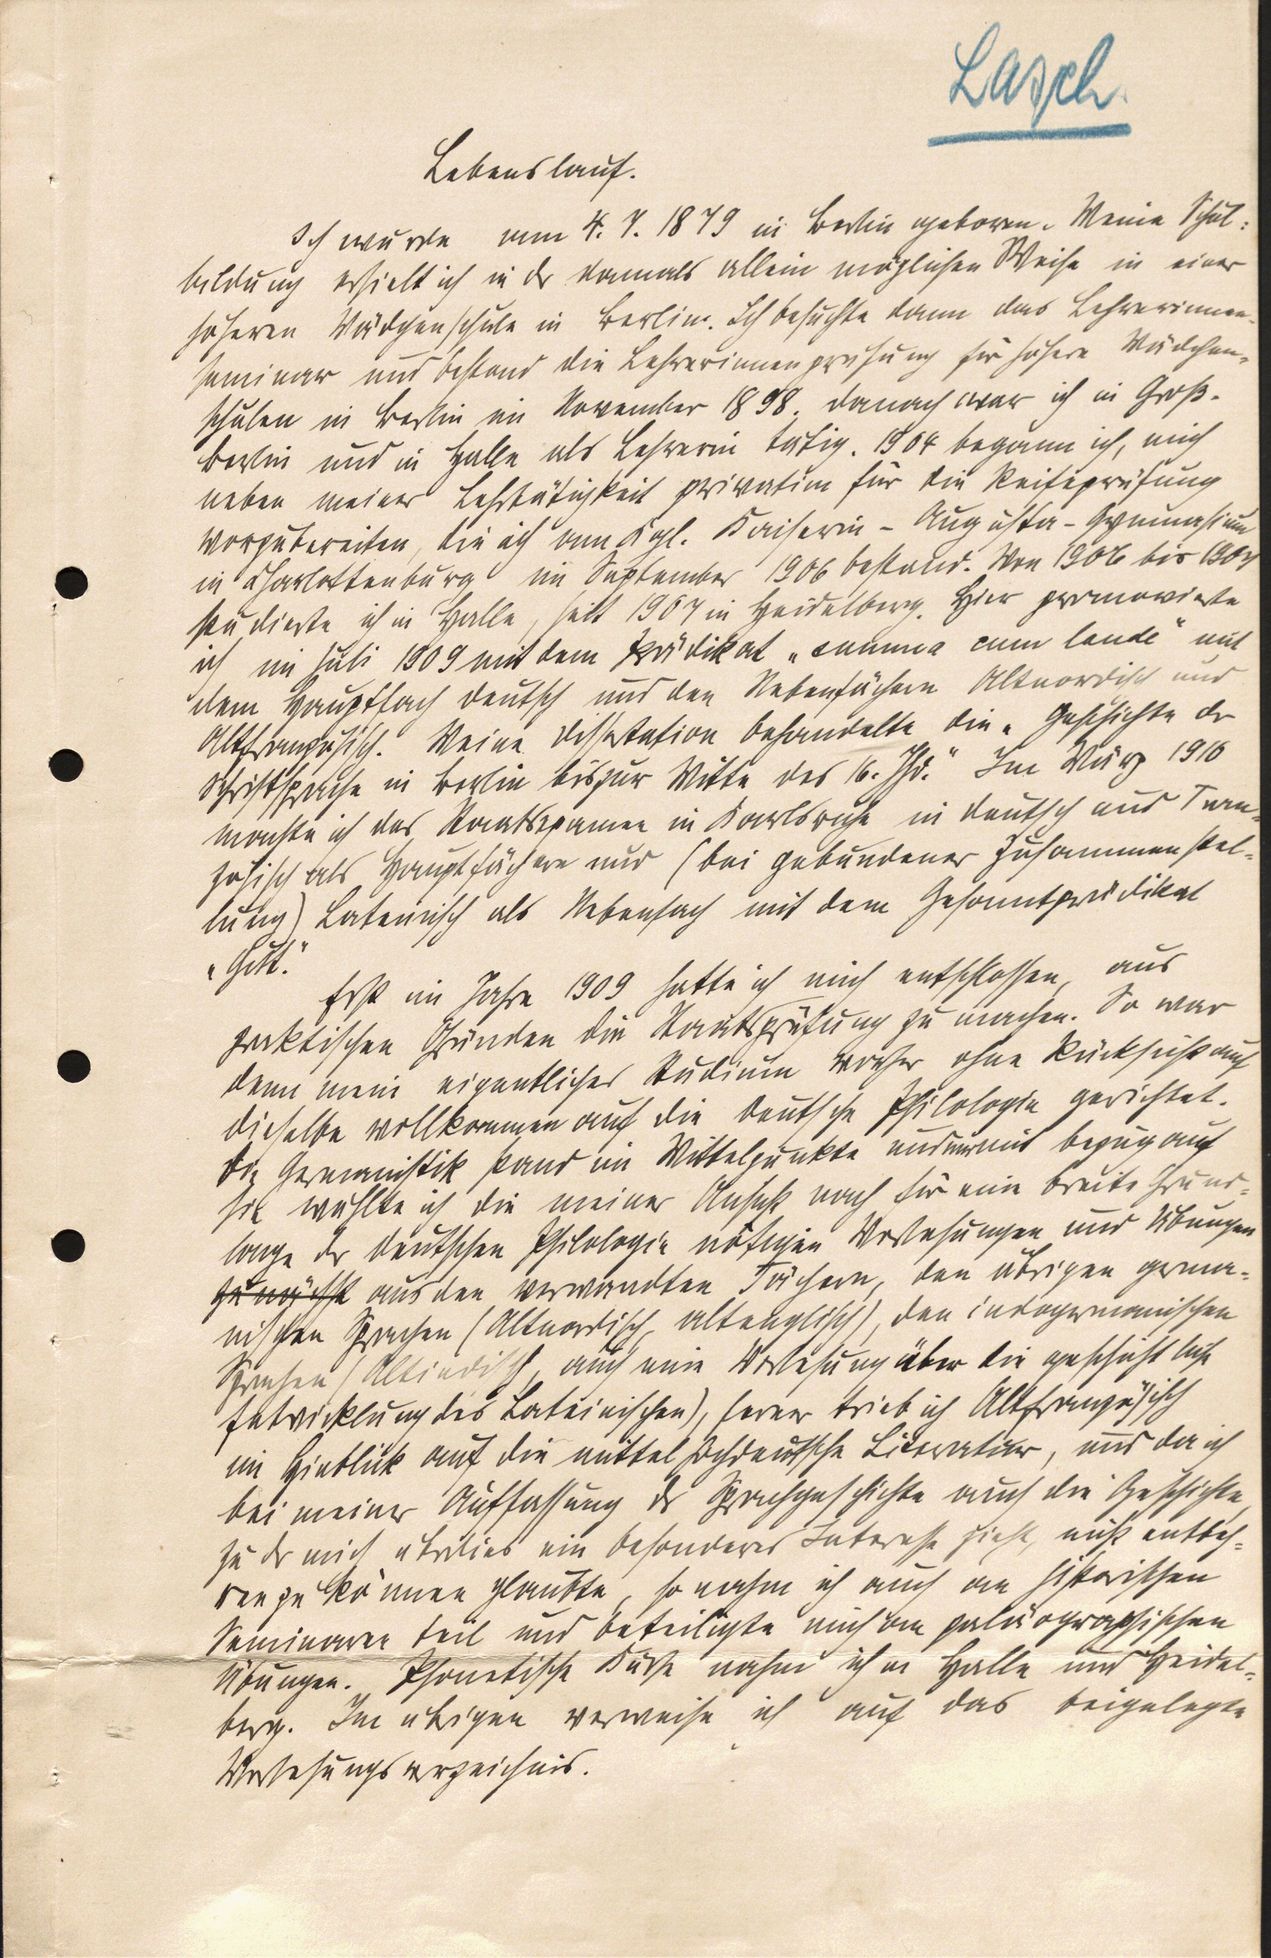 Lasch.
Lebenslauf.
Ich wurde am 4. 7. 1879 in Berlin geboren. Meine Schul-
bildung erhielt ich in der damals allein möglichen Weise in einer
höheren Mädchenschule in Berlin. Ich besuchte dann das Lehrerinnen-
seminar und bestand die Lehrerinnenprüfung für höhere Mädchen-
schulen in Berlin im November 1898. Danach war ich in Groß-
berlin und in Halle als Lehrerin tätig. 1904 begann ich, mich
neben meiner Lehrtätigkeit privatim für die Reifeprüfung
vorzubereiten, die ich am Kgl. Kaiserin-Augusta-Gymnasium
in Charlottenburg im September 1906 bestand. Von 1906 bis 1907
studierte ich in Halle, seit 1907 in Heidelberg. Hier promovierte
ich im Juli 1909 mit dem Prädikat „summa cum laude“ mit
dem Hauptfach Deutsch und den Nebenfächern Altnordisch und
Altfranzösisch. Meine Dissertation behandelte die „Geschichte der
Schriftsprache in Berlin bis zur Mitte des 16. Jhd.“ Im März 1910
machte ich das Staatsexamen in Karlsruhe in Deutsch und Fran-
zösisch als Hauptfächern und (bei gebundener Zusammenstel-
lung) Lateinisch als Nebenfach mit dem Gesamtprädikat
„Gut.“
Erst im Jahre 1909 hatte ich mich entschlossen, aus
praktischen Gründen die Staatsprüfung zu machen. So war
denn mein eigentliches Studium vorher ohne Rücksicht auf
dieselbe vollkommen auf die deutsche Philologie gerichtet.
Die Germanistik stand im Mittelpunkte und mit bezug auf
sie wählte ich die meiner Ansicht nach für eine breite Grund-
lage der deutschen Philologie nötigen Vorlesungen und Übungen
zunächst aus den verwandten Fächern, den übrigen germa-
nischen Sprachen (Altnordisch, altenglisch), den indogermanischen
Sprachen (Altindisch, auch eine Vorlesung über die geschichtliche
Entwicklung des Lateinischen), ferner trieb ich Altfranzösisch
im Hinblick auf die mittelhochdeutsche Literatur, und da ich
bei meiner Auffassung der Sprachgeschichte auch die Geschichte,
zu der mich überdies ein besonderes Interesse zieht, nicht entbeh-
ren zu können glaubte, so nahm ich auch an historischen
Seminaren teil und beteiligte mich an paläographischen
Übungen. Phonetische Kurse nahm ich in Halle und Heidel-
berg. Im übrigen verweise ich auf das beigelegte
Vorlesungsverzeichnis.